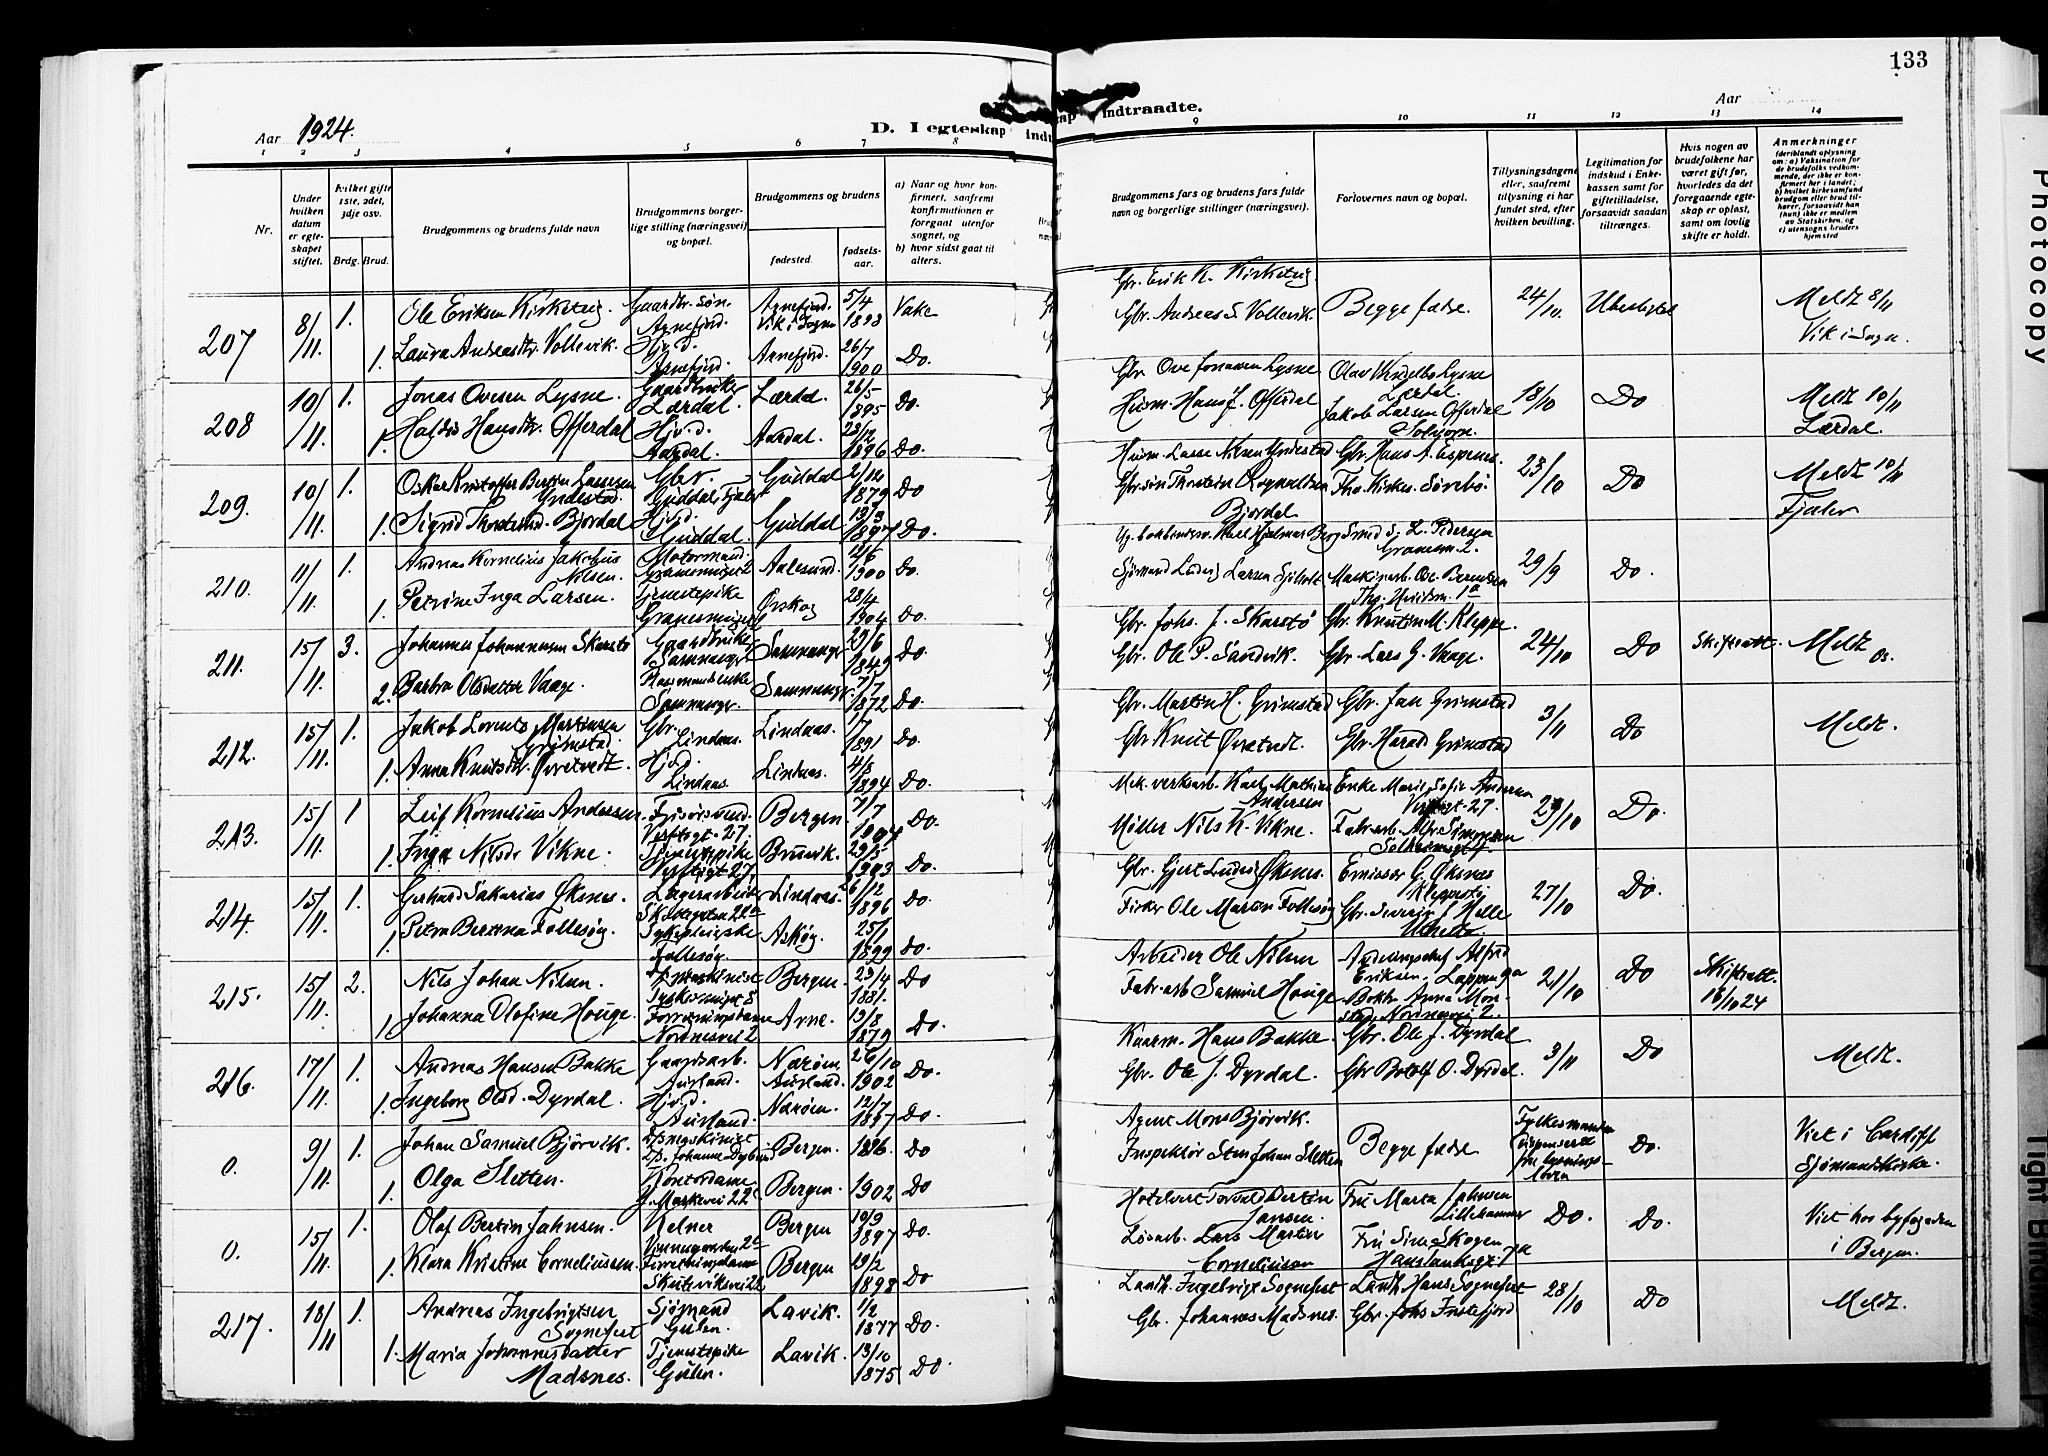 133
Aar 1924.
D. I egteskap indt
kap indtraadte.
Aar
1 2 3 4 5 6 7 8
9 10 11 12 13 14
Nr.
Under hvilken datum er egteskapet stiftet.
hvilket gifte 1ste, 2det, 3dje osv.
Brdg. Brud.
Brudgommens og brudens fulde navn
Brudgommens borgerlige stilling (næringsvei) og bopæl.
Brudgommens og brudens
fødested.
fødsels-aar.
a) Naar og hvor konfirmert, saafremt konfirmationen er foregaat utenfor sognet, og
b) hvor sidst gaat til alters.
Brudgommens fars og brudens fars fulde navn og borgerlige stillinger (næringsvei).
Forlovernes navn og bopæl.
Tillysningsdagene eller, saafremt tillysning ei har fundet sted, efter hvilken bevilling.
Legitimation for indskud i Enkekassen samt for giftetilladelse, forsaavidt saadan tiltrænges.
Hvis nogen av brudefolkene har været gift før, hvorledes da det foregaaende egteskap er opløst, samt om lovlig skifte er holdt.
Anmerkninger
(deriblandt oplysning om: a) Vaksination for de brudefolks vedkommende, der ikke er konfirmert her i landet; b) hvilket kirkesamfund brudgom eller brud tilhører, forsaavidt han (hun) ikke er medlem av Statskirken, og c) utensogns bruders hjemsted
207 8/11. 1. Ole Eriksen Kirketeig. Gaardbr. søn. Arnefjord. Arnefjord. Vik i Sogn 5/4 1898 Vake
Gbr. Erik K. Kirketeig Begge fædre 24/10. Ubeslegtet Meldt 8/11 Vik i Sogn.
1. Laura Andreasdtr. Vollevik. Hj.v.d. Arnefjord. Arnefjord. 26/7 1900 Do.
Gbr. Andreas S. Vollevik.
208 10/11. 1. Jonas Ovesen Lysne. Gaardbruker Lærdal. Lærdal. 26/5 1895 Do.
Gbr. Ove Jonassen Lysne Olav Lysne Lærdal. 18/10 Do Meldt 10/11 Lærdal.
1. Haldis Hansdtr. Offerdal Hj.v.d. Aardal. Aardal. 23/12 1896 Do.
Husm. Hans J. Offerdal Jakob Larsen Offerdal Solvorn.
209. 10/11. 1. Oskar Kristoffer Berten Lassesen Yndestad. Gbr. Guddal Fjaler Guddal 2/12 1879 Do
Husm. Lasse Nilsen Yndestad Gbr. Hans A. Espenes. 23/10 Do Meldt 10/11 Fjaler
1. Sigrid Thorstensd. Bjordal Hj.v.d. Guddal. Guddal 13/3 1897 Do.
Bjordal Tho. Kirkes. Sørebø.
210. 11/11. 1. Andreas Kornelius Jakobus Nilsen. Motormand. Aalesund. 12/6 1900 Do.
L. Pedersen 29/9 Do.
1. Petrine Inga Larsen. Tjenestepike Ørskog 28/4 1904 Do.
Sjømand Ludvig Larsen Maskinarb. Ole Berntsen
211. 15/11. 3. Johannes Johannessen Skarstø Gaardbruker Samnanger Samnanger 29/6 1849 Do.
Gbr. Johs. J. Skarstø Gbr. Knut M. Kleppe. 24/10 Do Skifteatt. Meldt Os.
2. Barbra Olsdatter Vaage. Samnanger Samnanger. 7/7 1872 Do.
Gbr. Ole P. Sandvik. Gbr. Lars G. Vaage.
212. 15/11. 1. Jakob Lorents Martinsen Grimstad. Gbr. Lindaas. Lindaas. 1/7 1891 Do.
Gbr. Martin H. Grimstad Gbr. Jan Grimstad 3/11 Do Meldt.
1. Anna Knutsdtr. Øvretvedt. Hj.v.d. Lindaas. Lindaas. 4/8 1894 Do.
Gbr. Knut Øvretvedt. Gbr. Harald Grimstad
213. 15/11. 1 Leif Kornelius Andersen. Vestlogt. 27. Bergen. 7/7 Do.
Mek. verksarb. Karl Mathias Andersen Enke Marie Sofie Andersen 27. 29/10 Do.
1. Inga Nilsdr. Vikne. Tjenestepike Bruvik. 29/5 1903 Do.
Møller Nils K. Vikne. Fabr.arb. Alfr. Simonsen
214. 15/11. 1. Gerhard Sakarias Øksnes. Lagerarbeider Skottegaten 22a Lindaas. 6/12 1896 Do.
Gbr. Gjert Øksnes. Emissær G. Øksnes Kleppestø 27/10 Do.
1. Petra Bertina Follesøy. Sykepleierske Follesøy. Askøy. 25/1 1899 Do.
Fisker Ole Follesøy Gbr. Severin J. Helle
215. 15/11. 2. Nils Johan Nilsen. 8 Bergen. 23/4 1881. Do
Arbeider Ole Nilsen Alfred Eriksen. 21/10 Do Skifteatt. 16/10 24
1. Johanna Olefine Houge. Forretningsdame Nordnesvei 2 Arne. 13/8 1879 Do.
Fabr.arb Samuel Houge Bokh. Anna Monstad, Nordnesvei 2.
216. 17/11. 1. Andreas Hansen Bakke Gaardsarb. Aurland. Nærøen. Aurland. 26/10 1902 Do.
Kaarm. Hans Bakke. Gbr. Ole J. Dyrdal 3/11 Do Meldt.
1. Ingeborg Olsd. Dyrdal. Hj.v.d. Aurland. Nærøen. 12/7 1897 Do.
Gbr. Ole J. Dyrdal. Gbr Botolf O. Dyrdal.
0. 9/11. 1. Johan Samuel Bjørvik. Bergen. 1896. Do
Agent Mons Bjørvik. Begge fædre Fylkesmanden dispenseret fra lysnings- Do. Viet i Cardiff Sjømandskirke.
1. Olga Sletten. Kontordame 22 Bergen. 1902 Do
Inspektør Sten Johan Sletten
0. 15/11. 1. Olaf Bertin Jahnsen. Kelner Bergen 19/9 1897 Do.
Hotelvert Torvald Bertin Jansen. Fru Marta Jahnsen Lillehammer Do. Do. Viet hos byfogeden i Bergen.
1. Klara Kristine Corneliussen. Forretningsdame Bergen 19/2 1898 Do
Løsarb. Lars Martin Corneliussen Fru Sina Skogen
217. 18/11 1. Andreas Ingebrigtsen Sognefest Sjømand Gulen. Lavik. 1/2 1877 Do.
Landh. Ingebrigt Sognefest Landh. Hans Sognefest 28/10 Do Meldt.
1. Maria Johannesdatter Madsnes. Tjenestepike Gulen. Lavik. 13/10 1875 Do.
Gbr. Johannes Madsnes. Gbr. Johs Instefjord
Photocopy
Tight Bindin